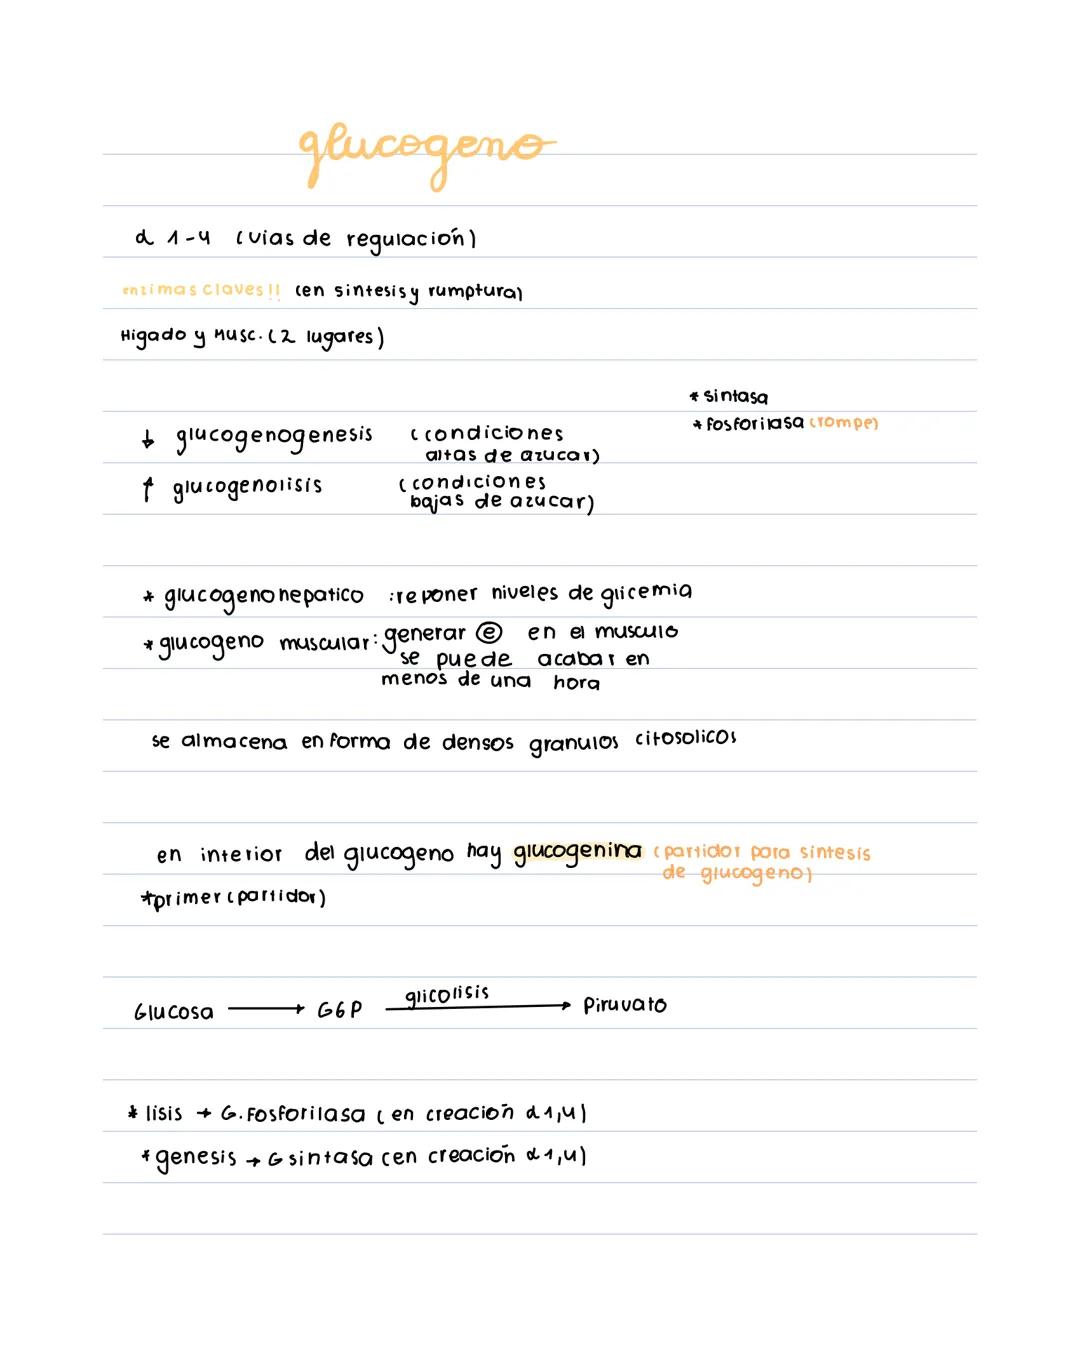 glucogeno
α 1-4 (vias de regulación)
enzimas claves!! (en sintesis y rumptura)
Higado y Musc. (2 lugares)
* sintasa
* fosforilasa (rompe)
↓ glucogenogenesis (condiciones
altas de azucar)
↑ glucogenolisis (condiciones
bajas de azucar)
* glucogeno hepatico : reponer niveles de glicemia
* glucogeno muscular: generar ⓔ en el musculo
se puede acabar en
menos de una hora
se almacena en forma de densos granulos citosolicos
en interior del glucogeno hay glucogenina (partidor para sintesis
de glucogeno)
*primer (partidor)
Glucosa → G6P glicolisis → Piruvato
* lisis → G. Fosforilasa (en creación α1,4)
* genesis → G sintasa (en creación α1,4)